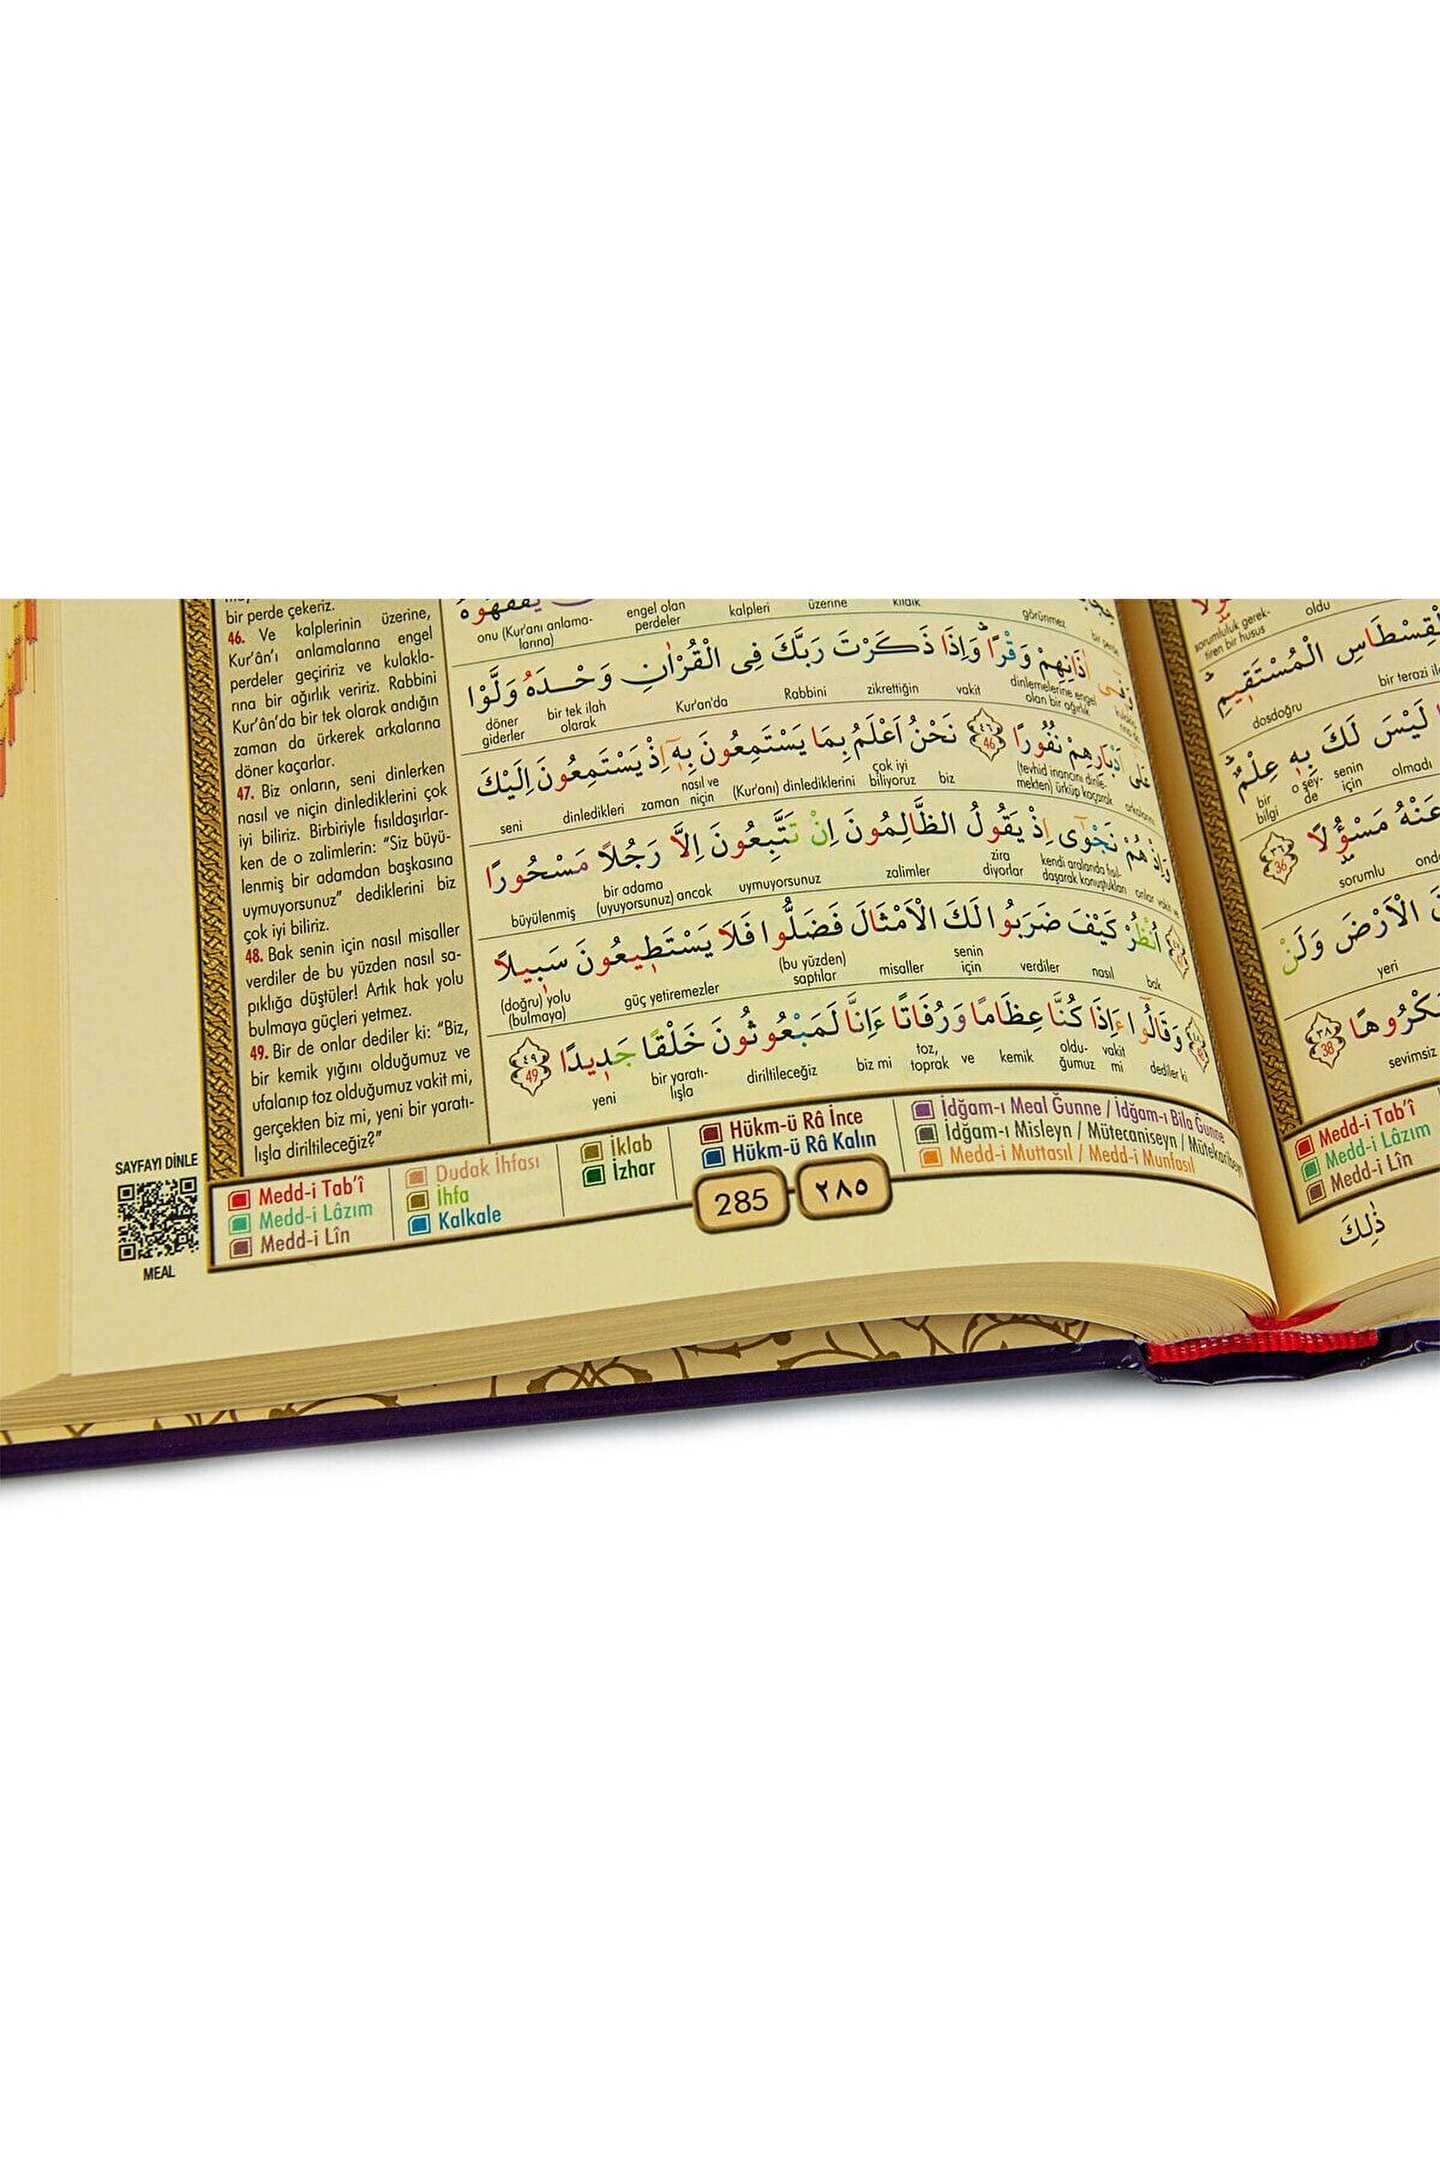 bir perde çekeriz.
46. Ve kalplerinin üzerine,
Kur'ân'ı anlamalarına engel
perdeler geçiririz ve kulakla-
rına bir ağırlık veririz. Rabbini
Kur'ân'da bir tek olarak andığın
zaman da ürkerek arkalarına
döner kaçarlar.
47. Biz onların, seni dinlerken
nasıl ve niçin dinlediklerini çok
iyi biliriz. Birbiriyle fısıldaşırlar-
ken de o zalimlerin: "Siz büyü-
lenmiş bir adamdan başkasına
uymuyorsunuz" dediklerini biz
çok iyi biliriz.
48. Bak senin için nasıl misaller
verdiler de bu yüzden nasıl sa-
pıklığa düştüler! Artık hak yolu
bulmaya güçleri yetmez.
49. Bir de onlar dediler ki: "Biz,
bir kemik yığını olduğumuz ve
ufalanıp toz olduğumuz vakit mi,
gerçekten biz mi, yeni bir yaratı-
lışla diriltileceğiz?"
onu (Kur'anı anlama-larına) engel olan perdeler kalpleri üzerine kıldık görünmez
وَفٓي اٰذَانِهِمْ وَقْرًاۜ وَاِذَا ذَكَرْتَ رَبَّكَ فِي الْقُرْاٰنِ وَحْدَهُ وَلَّوْا
döner giderler bir tek ilah olarak Kur'an'da Rabbini zikrettiğin vakit dinlemelerine engel olan bir ağırlık
عَلٰٓى اَدْبَارِهِمْ نُفُورًا ﴿٤٦﴾ 46 نَحْنُ اَعْلَمُ بِمَا يَسْتَمِعُونَ بِه۪ٓ اِذْ يَسْتَمِعُونَ اِلَيْكَ
seni dinledikleri zaman nasıl ve niçin (Kur'anı) dinlediklerini çok iyi biliyoruz biz (tevhid inancını dinle-mekten) ürküp kaçarak arkalarını
وَاِذْ هُمْ نَجْوٰٓى اِذْ يَقُولُ الظَّالِمُونَ اِنْ تَتَّبِعُونَ اِلَّا رَجُلًا مَسْحُورًا
büyülenmiş bir adama (uyuyorsunuz) ancak uymuyorsunuz zalimler zira diyorlar kendi aralarında fısıl-daşarak konuştukları onlar vakit ve
اُنْظُرْ كَيْفَ ضَرَبُوا لَكَ الْاَمْثَالَ فَضَلُّوا فَلَا يَسْتَطٖيعُونَ سَبٖيلًا
(doğru) yolu (bulmaya) güç yetiremezler (bu yüzden) saptılar misaller senin için verdiler nasıl bak
وَقَالُٓوا ءَاِذَا كُنَّا عِظَامًا وَرُفَاتًا ءَاِنَّا لَمَبْعُوثُونَ خَلْقًا جَدٖيدًا ﴿٤٩﴾ 49
yeni bir yaratı-lışla diriltileceğiz biz mi toz, toprak ve kemik oldu-ğumuz vakit mi dediler ki
SAYFAYI DİNLE
MEAL
Medd-i Tab'î
Medd-i Lâzım
Medd-i Lîn
Dudak İhfası
İhfa
Kalkale
İklab
İzhar
Hükm-ü Râ İnce
Hükm-ü Râ Kalın
İdğam-ı Meal Ğunne / İdğam-ı Bila Ğunne
İdğam-ı Misleyn / Mütecaniseyn / Mütekaribeyn
Medd-i Muttasıl / Medd-i Munfasıl
285 ٢٨٥
sorumluluk gerek-tiren bir husus oldu
الْمُسْتَقٖيمِۜ
dosdoğru bir terazi
لَيْسَ لَكَ بِهٖ عِلْمٌۜ
bir bilgi o şey-de senin için olmadı
عَنْهُ مَسْؤُ۫لًا ﴿٣٦﴾ 36
sorumlu
الْاَرْضَ وَلَنْ
yeri
﴿٣٨﴾ 38
sevimsiz
Medd-i Tab'î
Medd-i Lâzım
Medd-i Lîn
ذٰلِكَ